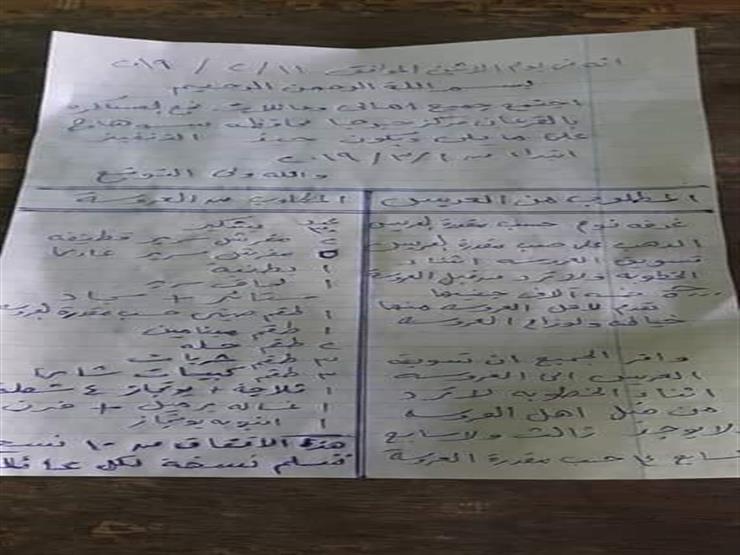 انه في يوم الاثنين الموافق ١١ / ٢ / ٢٠١٩
بسم الله الرحمن الرحيم
اجتمع جميع اهالى وعائلات نجع
بالقرعان مركز جرجا محافظه سوهاج
على ما يلى ويكون حيز التنفيذ
ابتداء من ١ / ٣ / ٢٠١٩
والله ولى التوفيق
المطلوب من العريس
غرفه نوم حسب مقدرة العريس
الدهب على حسب مقدرة العريس
تسويق العروسه اثناء
الخطوبه ولا ترد من قبل العروسة
خمسه آلاف جنيها
تقدم لاهل العروسه منها
خياطه ولوازم العروسه
واقر الجميع ان تسويق
العريس الى العروسه
اثناء الخطوبه لا ترد
من قبل اهل العروسه
ولا يوجد ثالث ولا سابع
حسب مقدرة العروسة
المطلوب من العروسة
مفرش سرير قطيفه
٥ مفرش سرير عادى
١ بطانيه
١ لحاف سرير
ستائر + سجاد
١ طقم صينى حسب مقدرة العروسة
١ طقم
٢ طقم حله
٣ طقم شربات
٣ طقم كبيات شاى
١ ثلاجة + بوتجاز ٤ شعلة
١ غساله برميل + فرن
١ انبوبه بوتجاز
هذا الاتفاق من ١٠ نسخ
تتسلم نسخة لكل عائلة